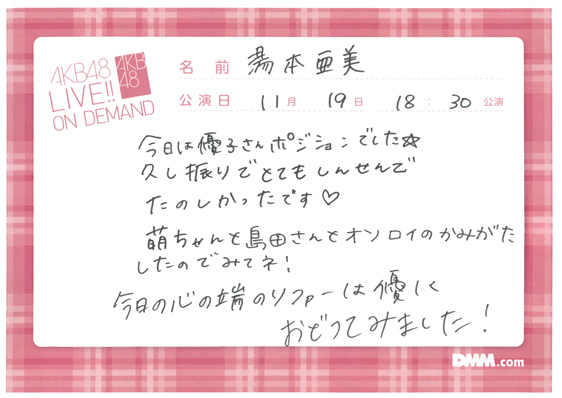 AKB48
LIVE!!
ON DEMAND
AKB
48
名 前 湯本亜美
公演日 11月 19日 18:30公演
今日は優子さんポジションでした☆
久し振りでとてもしんせんで
たのしかったです♡
萌ちゃんと島田さんとオソロイのかみがた
したのでみてネ!
今日の心の端のソファーは優しく
おどってみました!
DMM.com